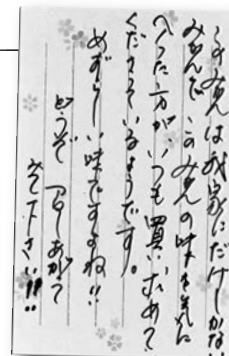 このみかんは我家にだけしかない
みかんで、このみかんの味を気に
入った方が、いつも買い求めて
くださっているようです。
めずらしい味ですよね!!
どうぞ 召しあがって
みて下さい!!!